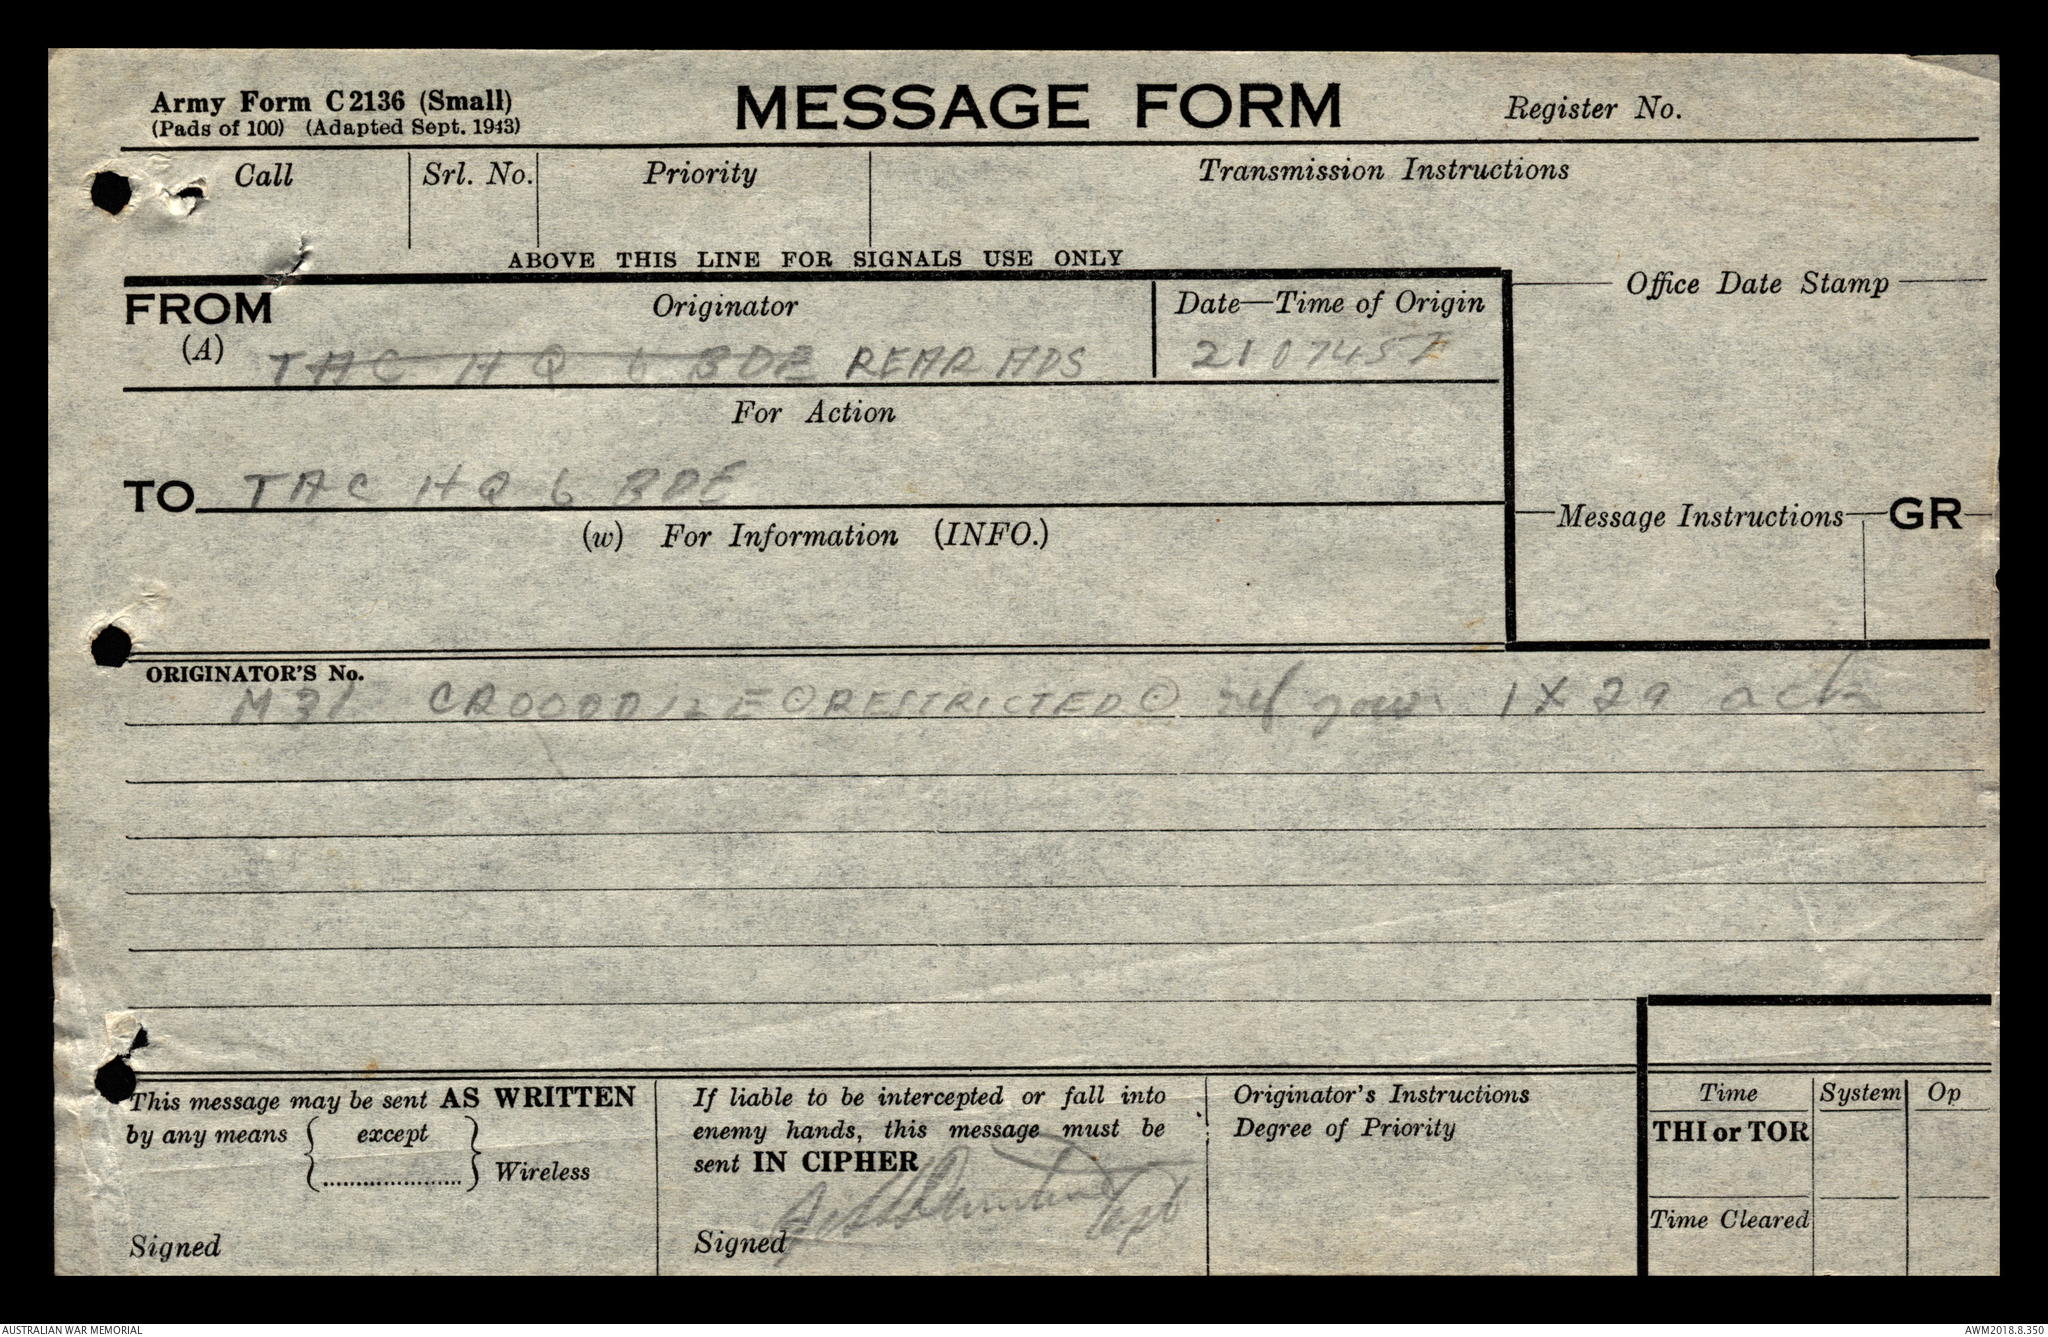 Army Form C2136 (Small)
(Pads of 100) (Adapted Sept. 1943)
MESSAGE FORM
Register No.
Call
Srl. No.
Priority
Transmission Instructions
ABOVE THIS LINE FOR SIGNALS USE ONLY
FROM
(A)
Originator
Date—Time of Origin
Office Date Stamp
TAC HQ 6 BDE REAR ADS
210745I
For Action
TO TAC HQ 6 BDE
(w) For Information (INFO.)
Message Instructions
GR
ORIGINATOR'S No.
M31 RESTRICTED ref your 1X29 ack
This message may be sent AS WRITTEN
by any means except
Wireless
Signed
If liable to be intercepted or fall into
enemy hands, this message must be
sent IN CIPHER
Signed
Capt
Originator's Instructions
Degree of Priority
Time
System
Op
THI or TOR
Time Cleared
AUSTRALIAN WAR MEMORIAL
AWM2018.8.350